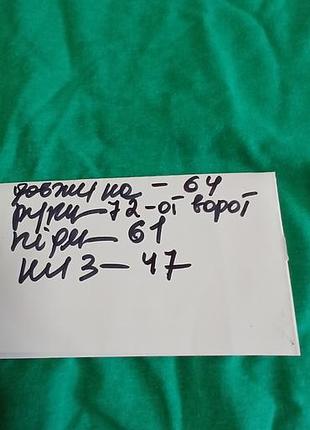 довжина - 64
руки - 72 - от ворот
піри - 61
низ - 47